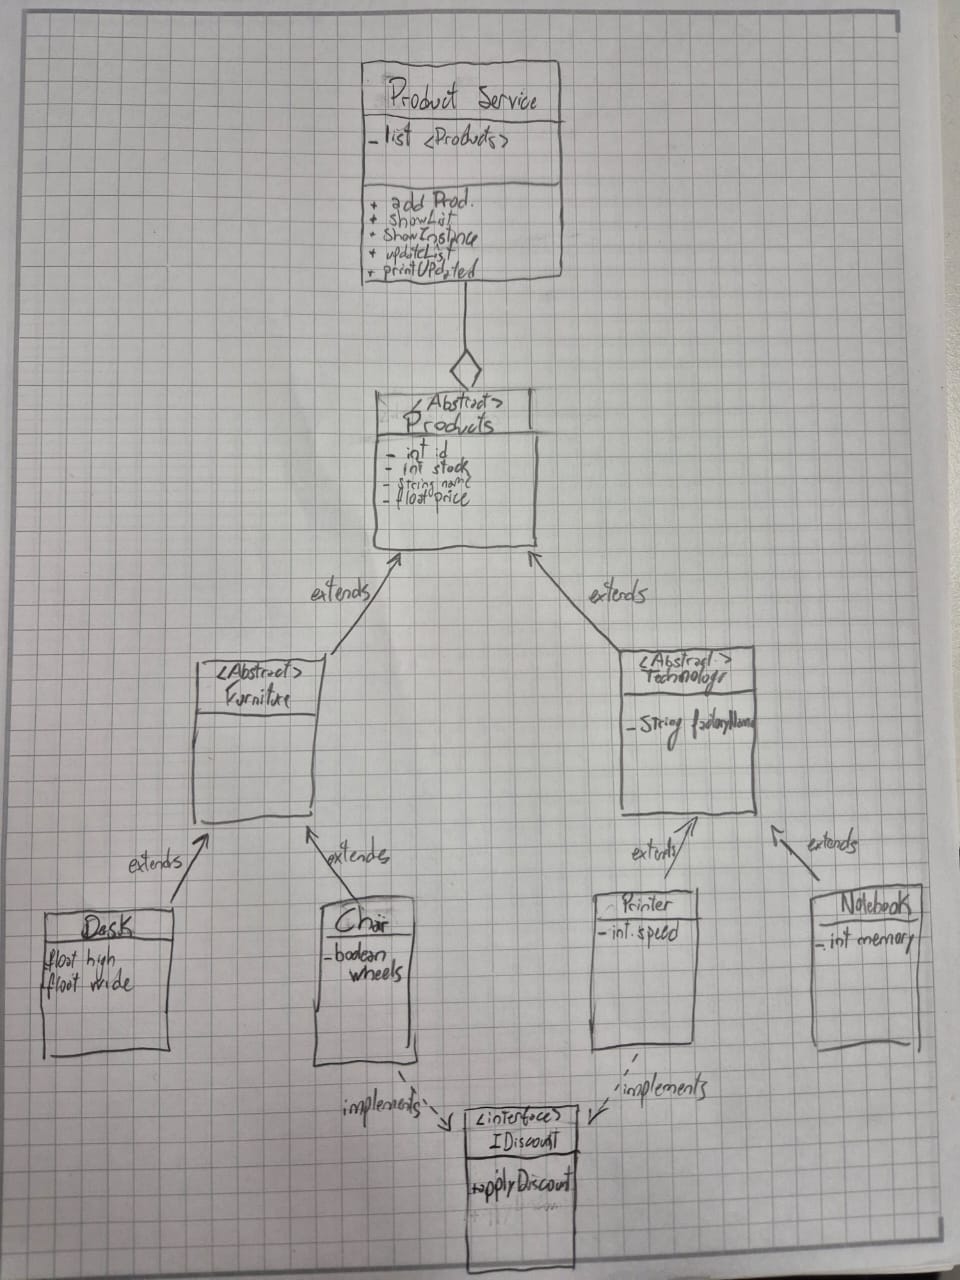 Product Service
- list <Products>
+ add Prod.
+ showList
+ showInstance
+ updateList
+ printUpdated
<Abstract>
Products
- int id
- int stock
- string name
- float price
extends
extends
<Abstract>
Furniture
<Abstract>
Technology
- String factoryName
extends
extends
extends
extends
Desk
float high
float wide
Chair
- boolean
wheels
Printer
- int speed
Notebook
- int memory
implements
implements
<interface>
IDiscount
+applyDiscount